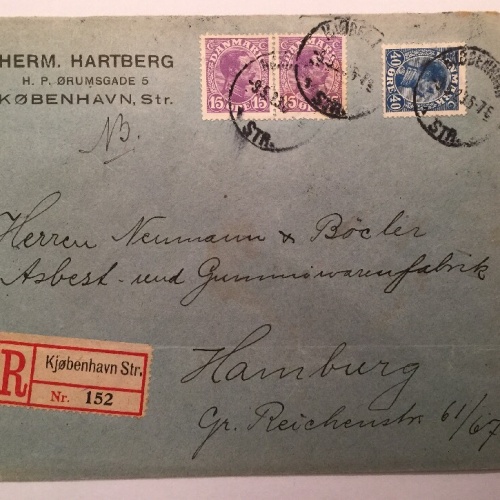 HERM. HARTBERG
H. P. ØRUMSGADE 5
KØBENHAVN, Str.
NB.
DANMARK DANMARK
15 ØRE 15 15 ØRE
40 ØRE 40
STR. STR. STR.
Herren Neumann & Böcler
Asbest- und Gummiwarenfabrik
Hamburg
Gr. Reichenstr. 61/67
R Kjøbenhavn Str.
Nr. 152